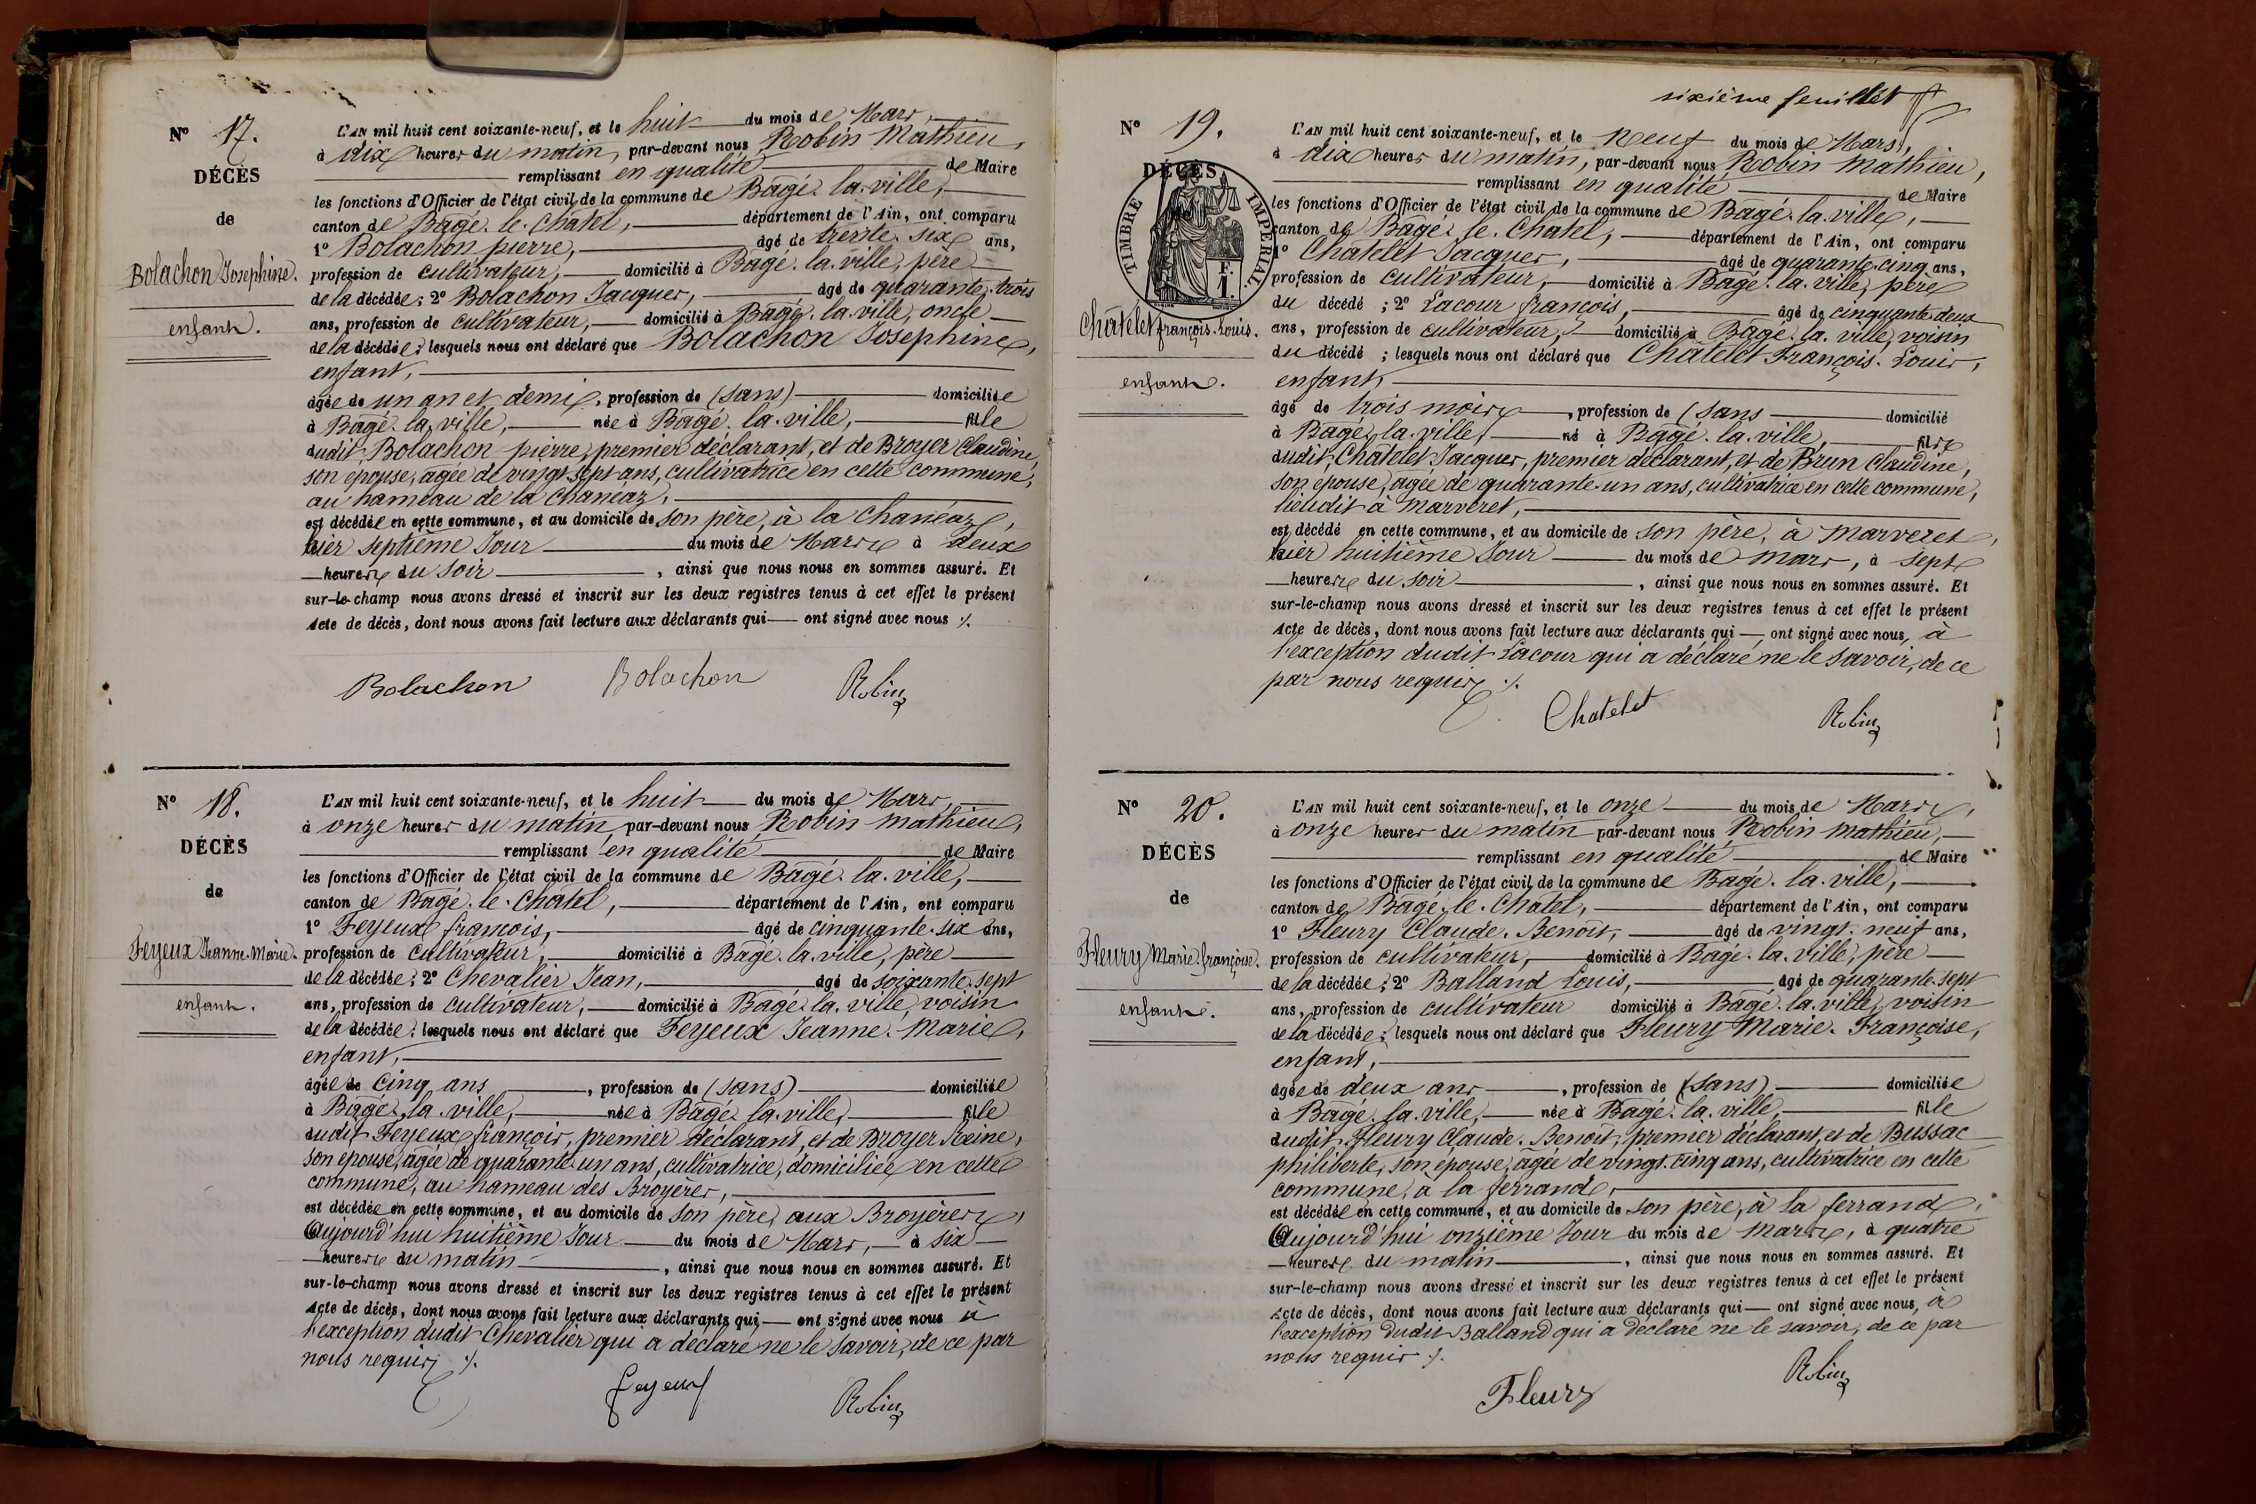 N° 17.
DÉCÈS
de
Bolachon Josephine.
enfant.
L'AN mil huit cent soixante-neuf, et le huit du mois de Mars,
à dix heures du matin, par-devant nous Robin Mathieu,
remplissant en qualité de Maire
les fonctions d'Officier de l'état civil de la commune de Bagé-la-ville,
canton de Bagé-le-Châtel, département de l'Ain, ont comparu
1° Bolachon pierre, âgé de trente-six ans,
profession de cultivateur, domicilié à Bagé-la-ville, père
de la décédée; 2° Bolachon Jacques, âgé de quarante-trois
ans, profession de cultivateur, domicilié à Bagé-la-ville, oncle
de la décédée; lesquels nous ont déclaré que Bolachon Josephine,
enfant,
âgée de un an et demi, profession de (sans) domiciliée
à Bagé-la-ville, née à Bagé-la-ville, fille
dudit Bolachon pierre, premier déclarant, et de Broyer Claudine,
son épouse, âgée de vingt-sept ans, cultivatrice en cette commune,
au hameau de la Chanéaz,
est décédée en cette commune, et au domicile de son père, à la Chanéaz,
hier septième Jour du mois de Mars à deux
heures du soir, ainsi que nous nous en sommes assuré. Et
sur-le-champ nous avons dressé et inscrit sur les deux registres tenus à cet effet le présent
Acte de décès, dont nous avons fait lecture aux déclarants qui ont signé avec nous ./.
Bolachon Bolachon Robin
N° 18.
DÉCÈS
de
Feyeux Jeanne-Marie.
enfant.
L'AN mil huit cent soixante-neuf, et le huit du mois de Mars,
à onze heures du matin, par-devant nous Robin Mathieu,
remplissant en qualité de Maire
les fonctions d'Officier de l'état civil de la commune de Bagé-la-ville,
canton de Bagé-le-Châtel, département de l'Ain, ont comparu
1° Feyeux françois, âgé de cinquante-six ans,
profession de cultivateur, domicilié à Bagé-la-ville, père
de la décédée; 2° Chevalier Jean, âgé de soixante-sept
ans, profession de cultivateur, domicilié à Bagé-la-ville, voisin
de la décédée; lesquels nous ont déclaré que Feyeux Jeanne-Marie,
enfant,
âgée de cinq ans, profession de (sans) domiciliée
à Bagé-la-ville, née à Bagé-la-ville, fille
dudit Feyeux françois, premier déclarant, et de Broyer Reine,
son épouse, âgée de quarante-un ans, cultivatrice, domiciliée en cette
commune, au hameau des Broyères,
est décédée en cette commune, et au domicile de son père, aux Broyères,
Aujourd'hui huitième Jour du mois de Mars, à six
heures du matin, ainsi que nous nous en sommes assuré. Et
sur-le-champ nous avons dressé et inscrit sur les deux registres tenus à cet effet le présent
Acte de décès, dont nous avons fait lecture aux déclarants qui ont signé avec nous à
l'exception dudit Chevalier qui a déclaré ne le savoir, de ce par
nous requis ./.
feyeux Robin
sixième feuillet
N° 19.
DÉCÈS
TIMBRE IMPERIAL.
F.
1.
Châtelet françois-Louis.
enfant.
L'AN mil huit cent soixante-neuf, et le neuf du mois de Mars,
à dix heures du matin, par-devant nous Robin Mathieu,
remplissant en qualité de Maire
les fonctions d'Officier de l'état civil de la commune de Bagé-la-ville,
canton de Bagé-le-Châtel, département de l'Ain, ont comparu
1° Châtelet Jacques, âgé de quarante-cinq ans,
profession de cultivateur, domicilié à Bagé-la-ville, père
du décédé; 2° Lacour françois, âgé de cinquante-deux
ans, profession de cultivateur, domicilié à Bagé-la-ville, voisin
du décédé; lesquels nous ont déclaré que Châtelet François-Louis,
enfant,
âgé de trois mois, profession de (sans domicilié
à Bagé-la-ville, né à Bagé-la-ville, fils
dudit, Châtelet Jacques, premier déclarant, et de Brun Claudine,
son épouse, âgée de quarante-un ans, cultivatrice en cette commune,
lieudit à Marveret,
est décédé en cette commune, et au domicile de son père, à Marveret,
hier huitième Jour du mois de mars, à sept
heures du soir, ainsi que nous nous en sommes assuré. Et
sur-le-champ nous avons dressé et inscrit sur les deux registres tenus à cet effet le présent
Acte de décès, dont nous avons fait lecture aux déclarants qui ont signé avec nous, à
l'exception dudit Lacour qui a déclaré ne le savoir, de ce
par nous requis ./.
Chatelet Robin
N° 20.
DÉCÈS
de
Fleury Marie-françoise.
enfant.
L'AN mil huit cent soixante-neuf, et le onze du mois de Mars,
à onze heures du matin par-devant nous Robin Mathieu,
remplissant en qualité de Maire
les fonctions d'Officier de l'état civil de la commune de Bagé-la-ville,
canton de Bagé-le-Châtel, département de l'Ain, ont comparu
1° Fleury Claude-Benoit, âgé de vingt-neuf ans,
profession de cultivateur, domicilié à Bagé-la-ville, père
de la décédée; 2° Balland Louis, âgé de quarante-sept
ans, profession de cultivateur domicilié à Bagé-la-ville, voisin
de la décédée; lesquels nous ont déclaré que Fleury Marie-Françoise,
enfant,
âgée de deux ans, profession de (sans) domiciliée
à Bagé-la-ville, née à Bagé-la-ville, fille
dudit Fleury Claude-Benoit, premier déclarant, et de Bussac
philiberte, son épouse, âgée de vingt-cinq ans, cultivatrice en cette
commune, à la ferrand,
est décédée en cette commune, et au domicile de son père, à la ferrand,
Aujourd'hui onzième Jour du mois de mars, à quatre
heures du matin, ainsi que nous nous en sommes assuré. Et
sur-le-champ nous avons dressé et inscrit sur les deux registres tenus à cet effet le présent
Acte de décès, dont nous avons fait lecture aux déclarants qui ont signé avec nous, à
l'exception dudit Balland qui a déclaré ne le savoir, de ce par
nous requis ./.
Fleury Robin